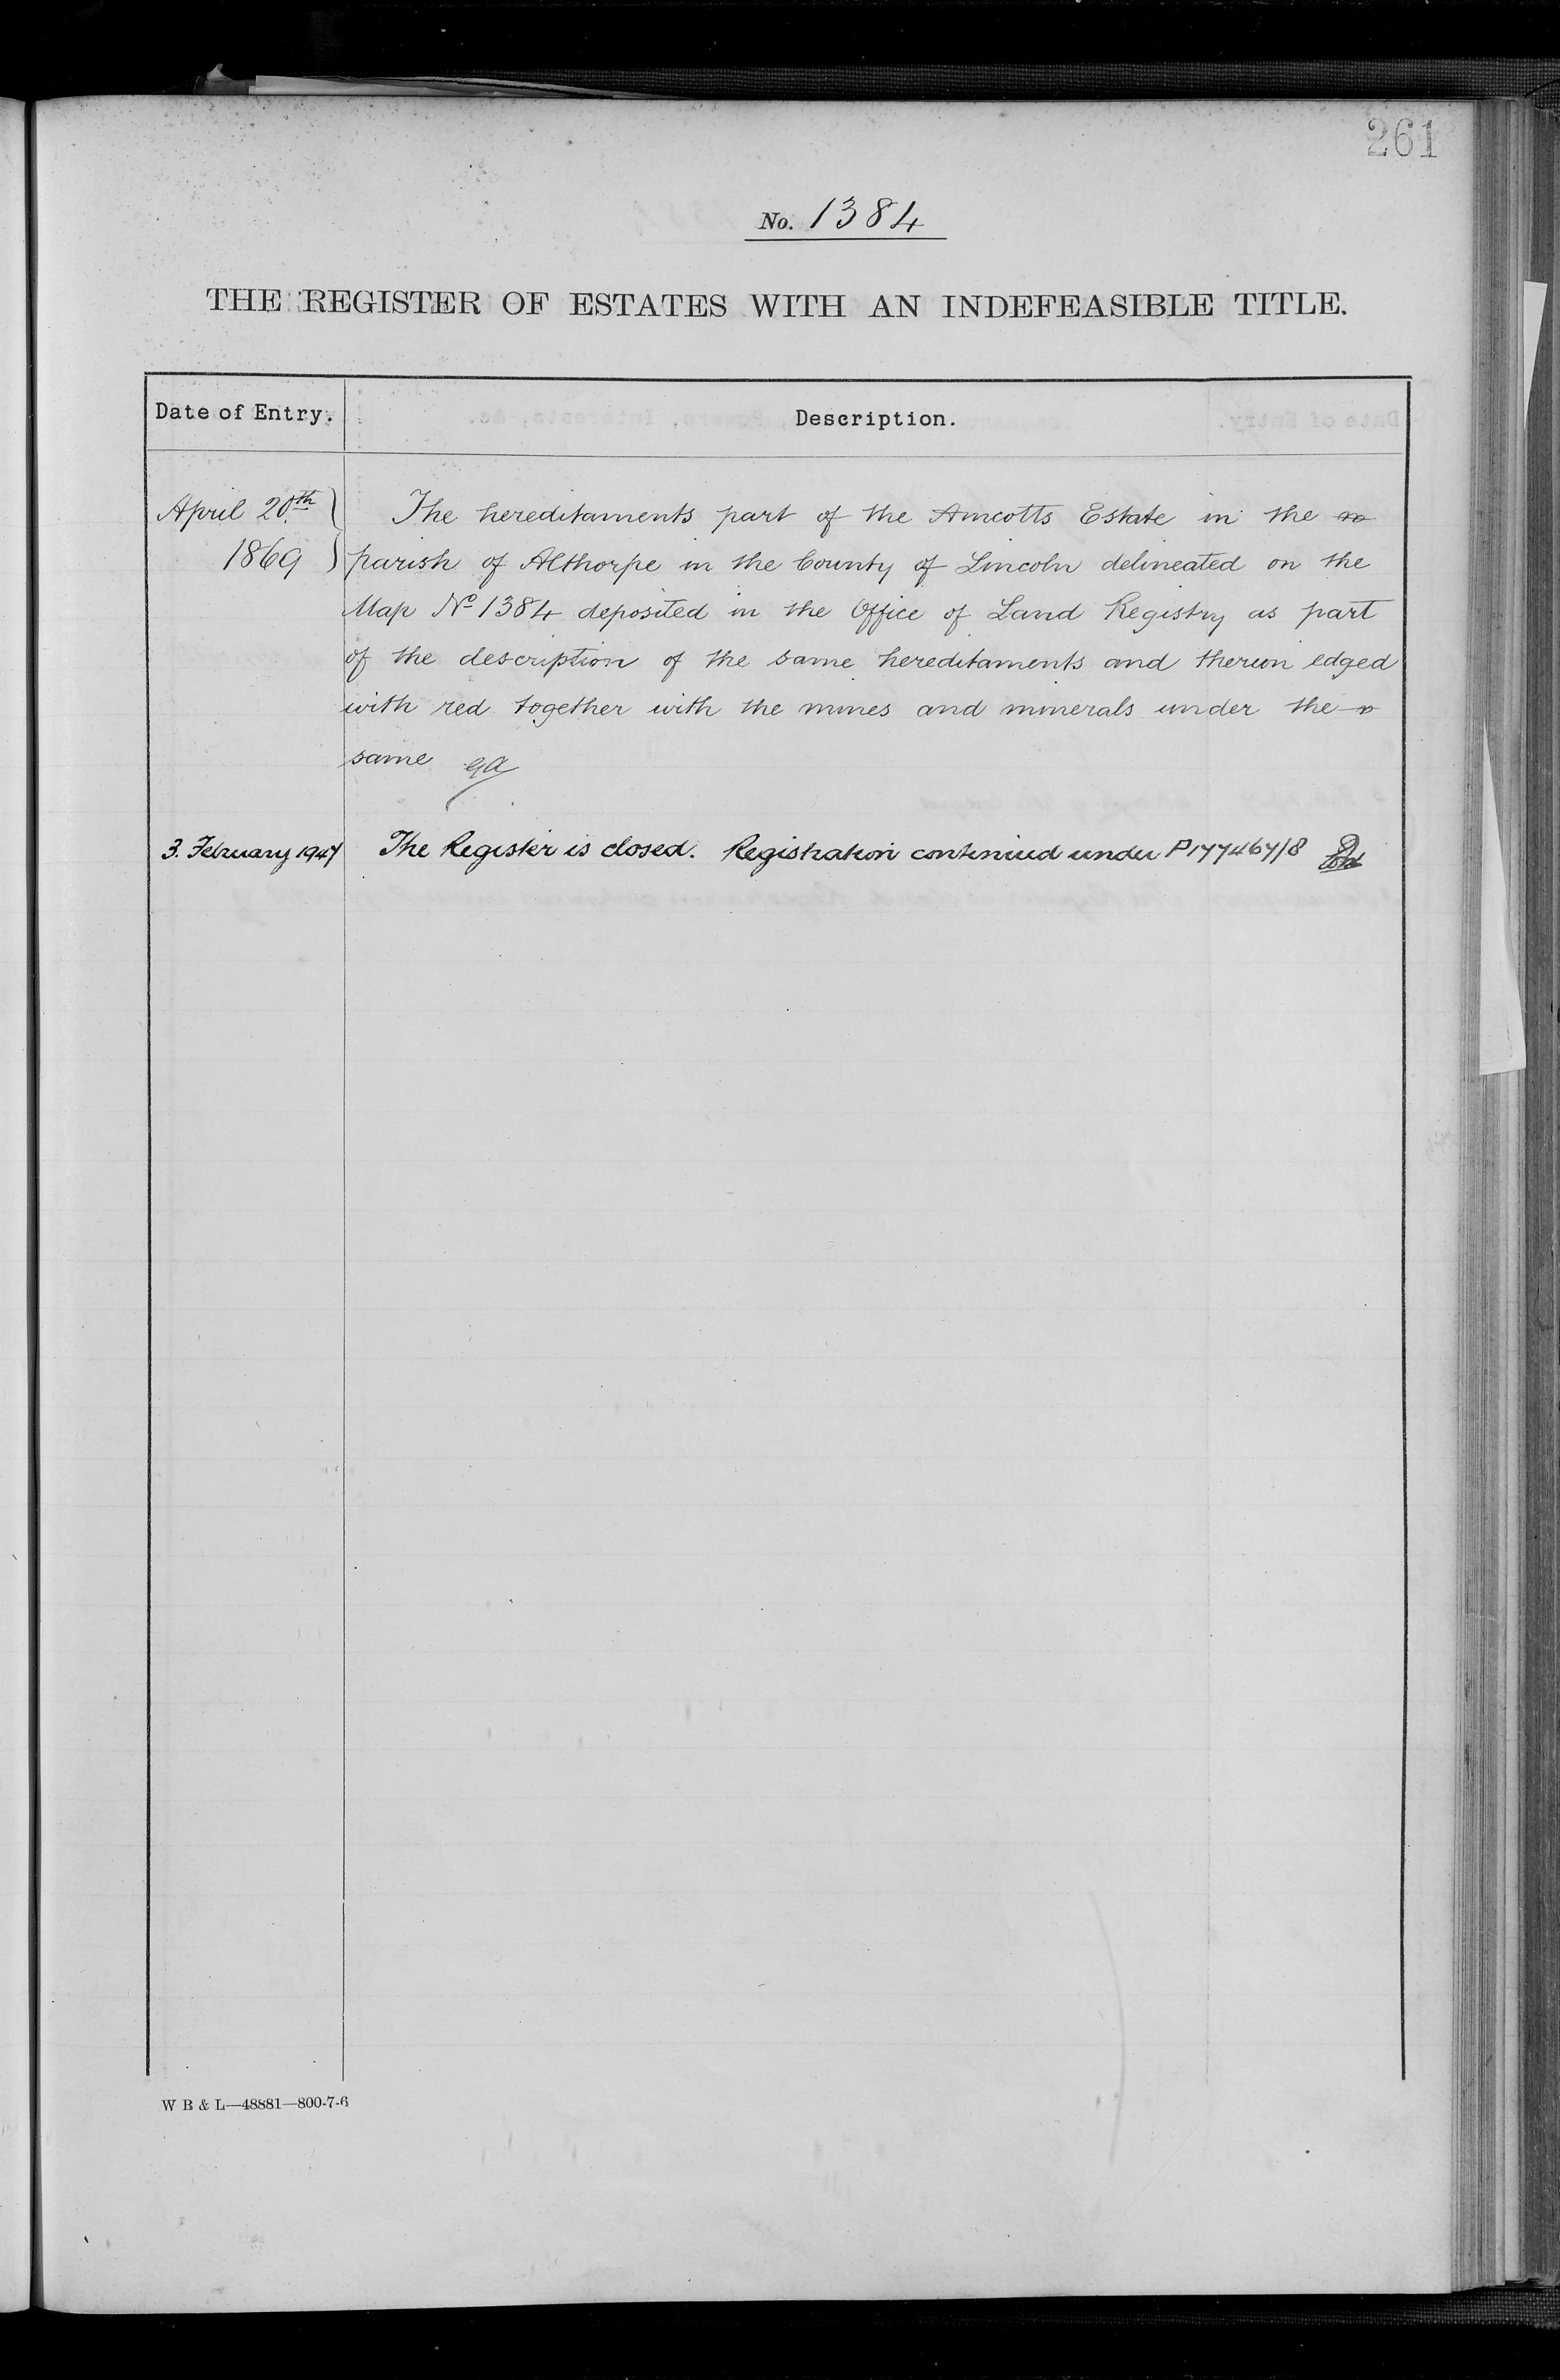 261
No. 1384
THE REGISTER OF ESTATES WITH AN INDEFEASIBLE TITLE.
Date of Entry. Description.
April 20th. 1869
The hereditaments part of the Amcotts Estate in the
parish of Althorpe in the County of Lincoln delineated on the
Map No 1384 deposited in the Office of Land Registry as part
of the description of the same hereditaments and thereon edged
with red together with the mines and minerals under the
same
3. February 1947 The Register is closed. Registration continued under P177467/8
W B & L—48881—800-7-6